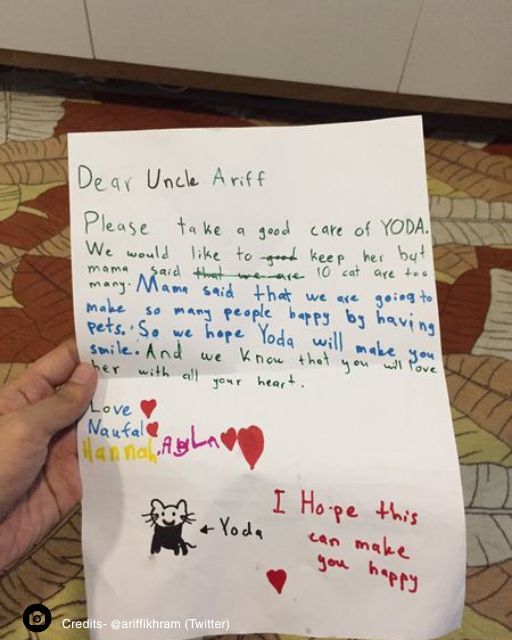 Dear Uncle Ariff
Please take a good care of YODA.
We would like to good keep her but
mama said that we are 10 cat are too
many. Mama said that we are going to
make so many people happy by having
pets. So we hope Yoda will make you
smile. And we know that you will love
her with all your heart.
Love
Naufal
Hannah, Ayla
← Yoda
I Hope this
can make
you happy
Credits- @ariffikhram (Twitter)